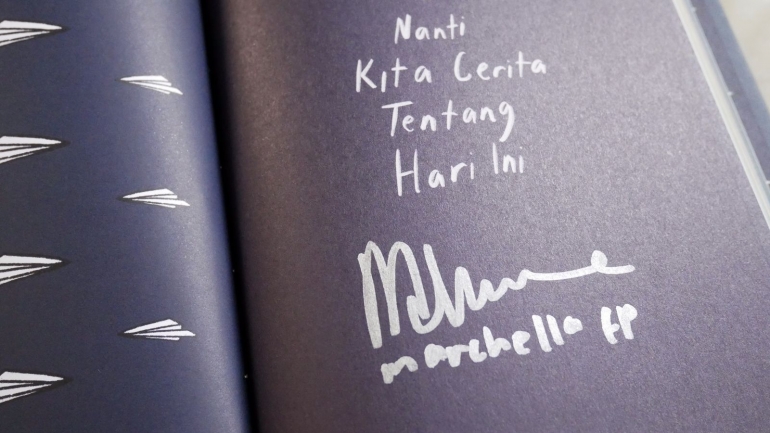 Nanti
Kita Cerita
Tentang
Hari Ini
marchella FP